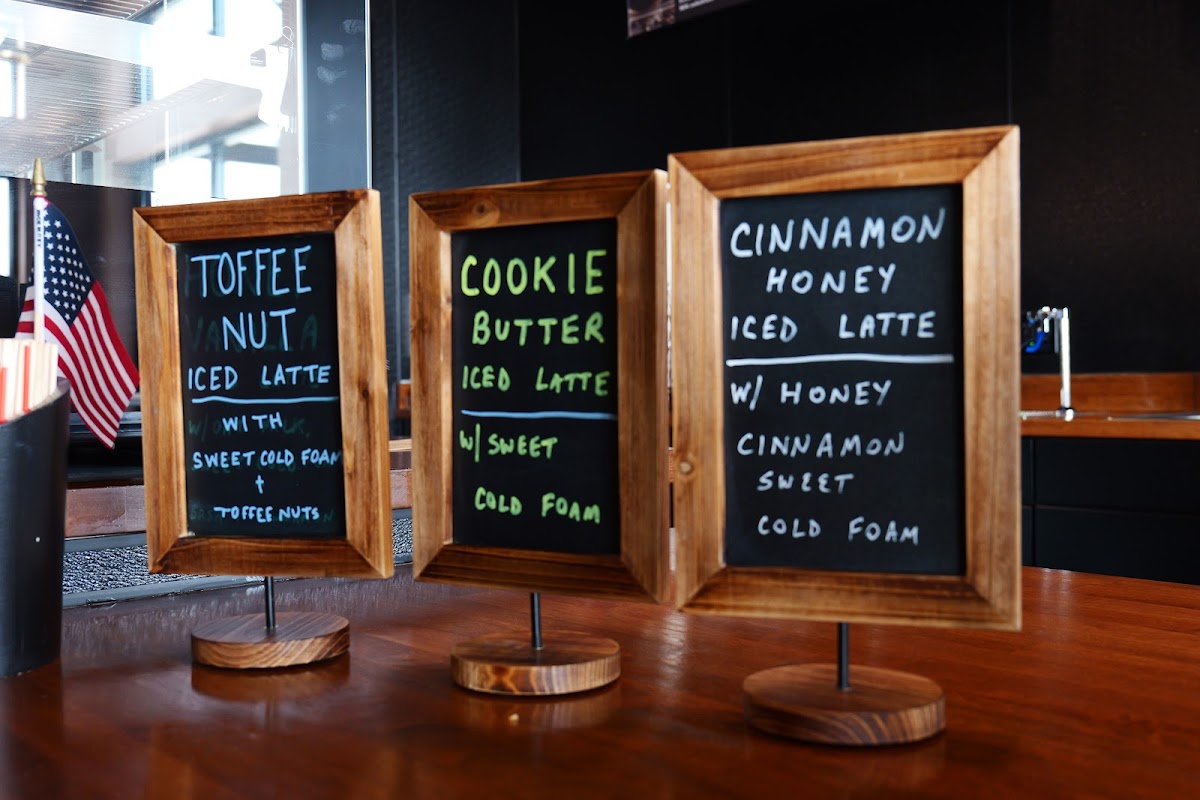 TOFFEE
NUT
ICED LATTE
WITH
SWEET COLD FOAM
+
TOFFEE NUTS
COOKIE
BUTTER
ICED LATTE
W/ SWEET
COLD FOAM
CINNAMON
HONEY
ICED LATTE
W/ HONEY
CINNAMON
SWEET
COLD FOAM